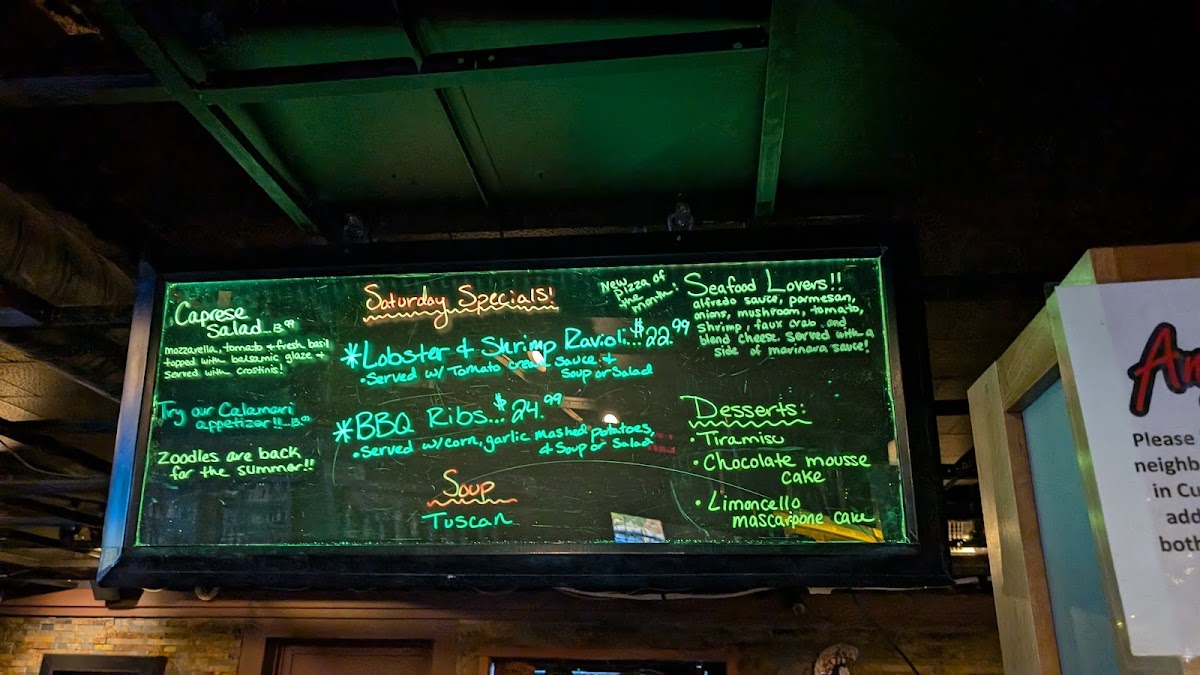 Caprese
Salad...13.99
mozzarella, tomato + fresh basil
topped with balsamic glaze +
served with crostinis!
Try our Calamari
appetizer!!...13.99
Zoodles are back
for the summer!!
Saturday Specials!
*Lobster & Shrimp Ravioli...$22.99
• Served w/ Tomato cream sauce +
Soup or Salad
*BBQ Ribs...$24.99
• served w/corn, garlic mashed potatoes,
& Soup or Salad
Soup
Tuscan
New
Pizza of
the
month!
Seafood Lovers!!
alfredo sauce, parmesan,
onions, mushroom, tomato,
shrimp, faux crab and
blend cheese. Served with a
side of marinara sauce!
Desserts:
• Tiramisu
• Chocolate mousse
cake
• Limoncello
mascarpone cake
Please
neighb
in Cu
add
both